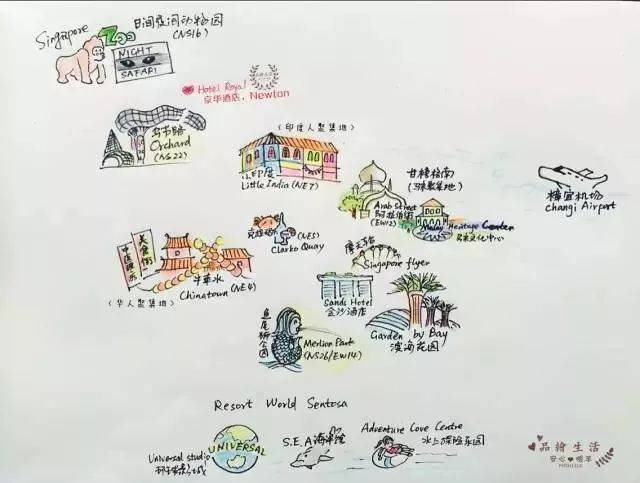 Singapore
Zoo
日间夜间动物园
(NS16)
NIGHT
SAFARI
Hotel Royal
京华酒店，Newton
乌节路
Orchard
(NS22)
(印度人聚集地)
小印度
Little India (NE7)
甘榜格南
Arab Street
阿拉伯街
(EW12)
Malay Heritage Center
马来文化中心
樟宜机场
Changi Airport
克拉码头
(NE5)
Clarke Quay
美食街
牛车水
Chinatown (NE4)
(华人聚集地)
摩天轮
Singapore flyer
Sands Hotel
金沙酒店
Garden by Bay
滨海花园
鱼尾狮公园
Merlion Park
(NS26/EW14)
Resort World Sentosa
UNIVERSAL
Universal studio
环球影城
S.E.A 海洋馆
Adventure Cove Centre
水上探险乐园
品绘生活